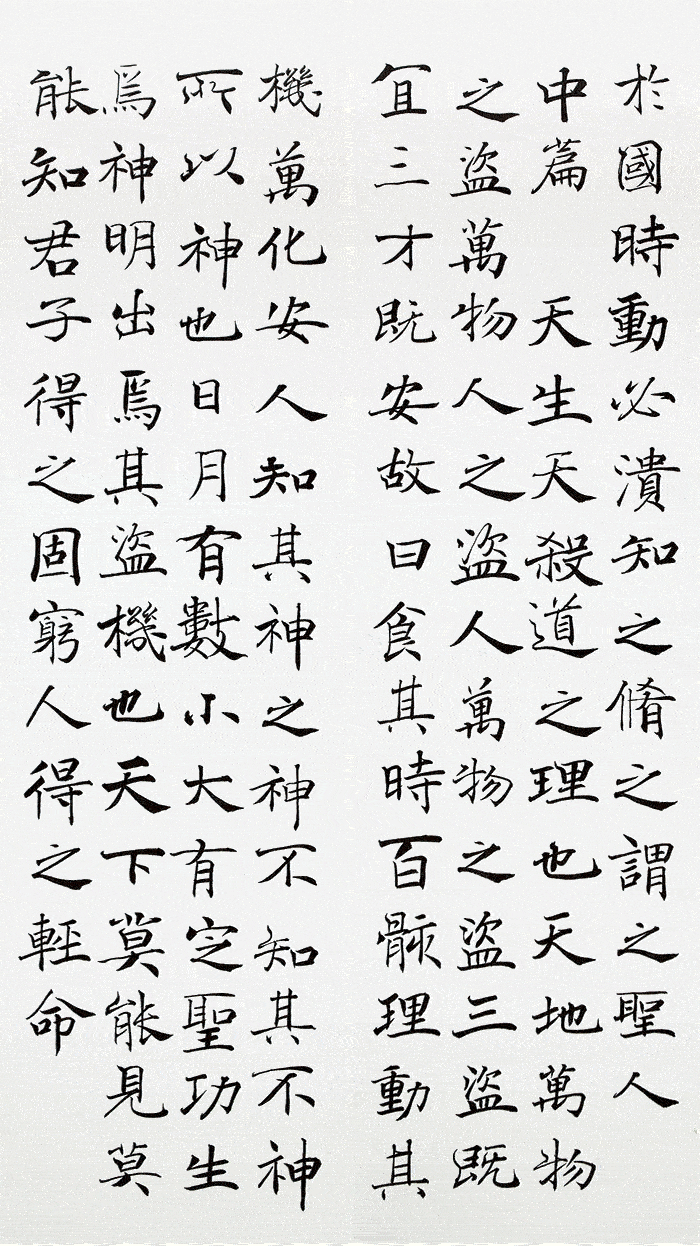 於國時動必潰知之脩之謂之聖人
中篇 天生天殺道之理也天地萬物
之盜萬物人之盜人萬物之盜三盜既
宜三才既安故曰食其時百骸理動其
機萬化安人知其神之神不知其不神
所以神也日月有數小大有定聖功生
焉神明出焉其盜機也天下莫能見莫
能知君子得之固窮人得之輕命